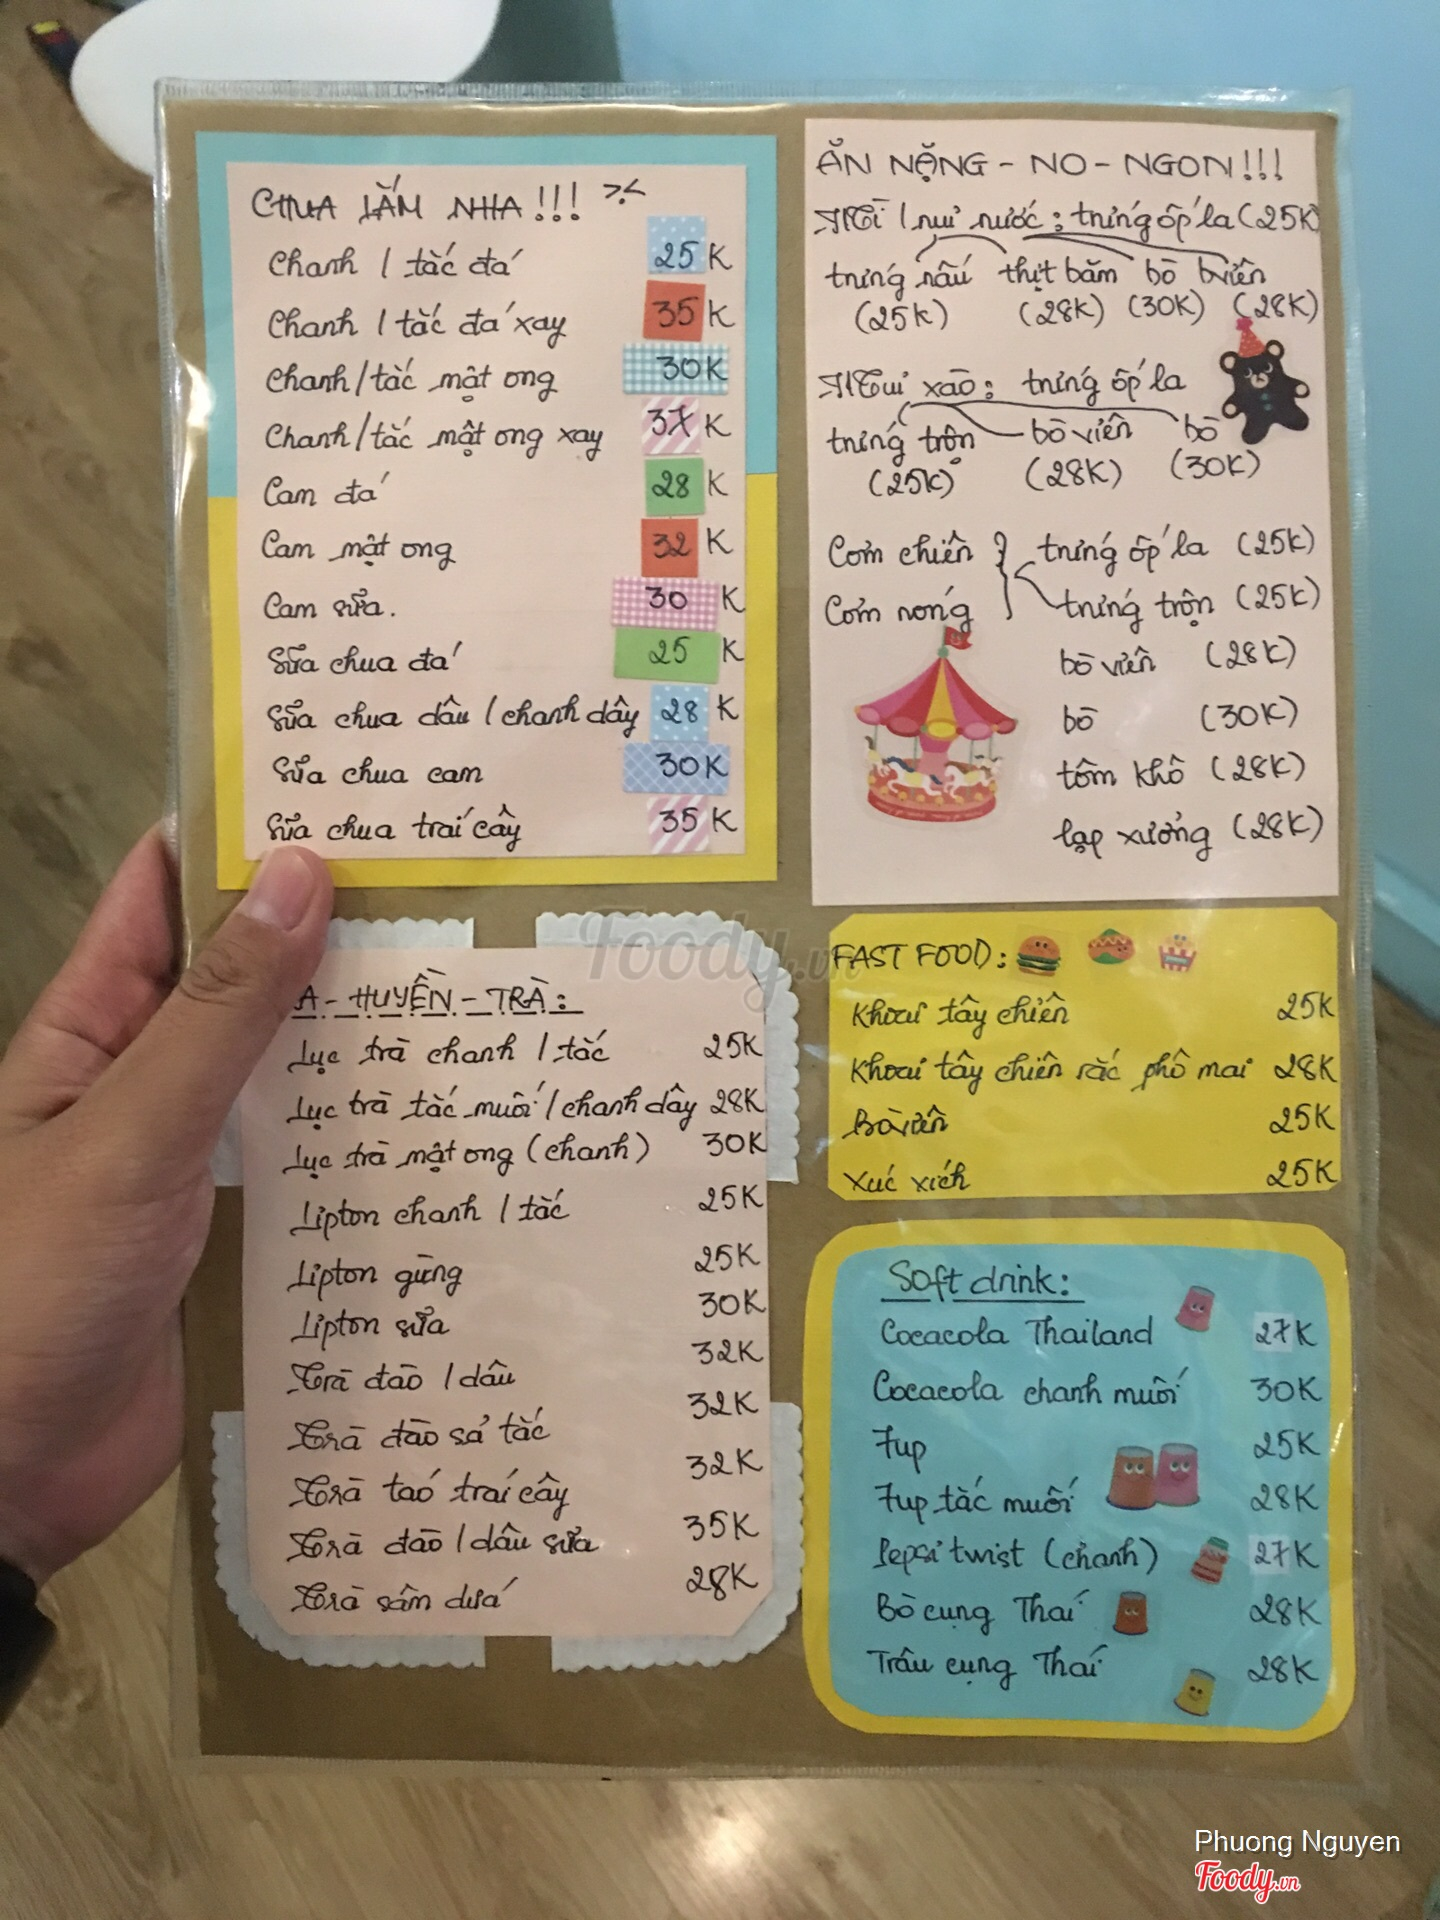 CHUA LẮM NHA!!! >.<
Chanh / tắc đá 25K
Chanh / tắc đá xay 35K
Chanh / tắc mật ong 30K
Chanh / tắc mật ong xay 37K
Cam đá 28K
Cam mật ong 32K
Cam sữa. 30K
Sữa chua đá 25K
Sữa chua dâu / chanh dây 28K
Sữa chua cam 30K
Sữa chua trái cây 35K
A - HUYỀN - TRÀ:
Lục trà chanh / tắc 25K
Lục trà tắc muối / chanh dây 28K
Lục trà mật ong (chanh) 30K
Lipton chanh / tắc 25K
Lipton gừng 25K
Lipton sữa 30K
Trà đào / dâu 32K
Trà đào sả tắc 32K
Trà táo trái cây 32K
Trà đào / dâu sữa 35K
Trà sâm dứa 28K
ĂN NẶNG - NO - NGON!!!
Mì / nui nước: trứng ốp la (25K)
trứng nấu thịt băm bò bò viên
(25K) (28K) (30K) (28K)
Mì xào: trứng ốp la
trứng trộn bò viên bò
(25K) (28K) (30K)
Cơm chiên trứng ốp la (25K)
Cơm nóng trứng trộn (25K)
bò viên (28K)
bò (30K)
tôm khô (28K)
lạp xưởng (28K)
FAST FOOD:
Khoai tây chiên 25K
Khoai tây chiên rắc phô mai 28K
Bò viên 25K
Xúc xích 25K
Soft drink:
Cocacola Thailand 27K
Cocacola chanh muối 30K
7up 25K
7up tắc muối 28K
Pepsi twist (chanh) 27K
Bò cụng Thái 28K
Trâu cụng Thái 28K
Foody.vn
Phuong Nguyen
Foody.vn